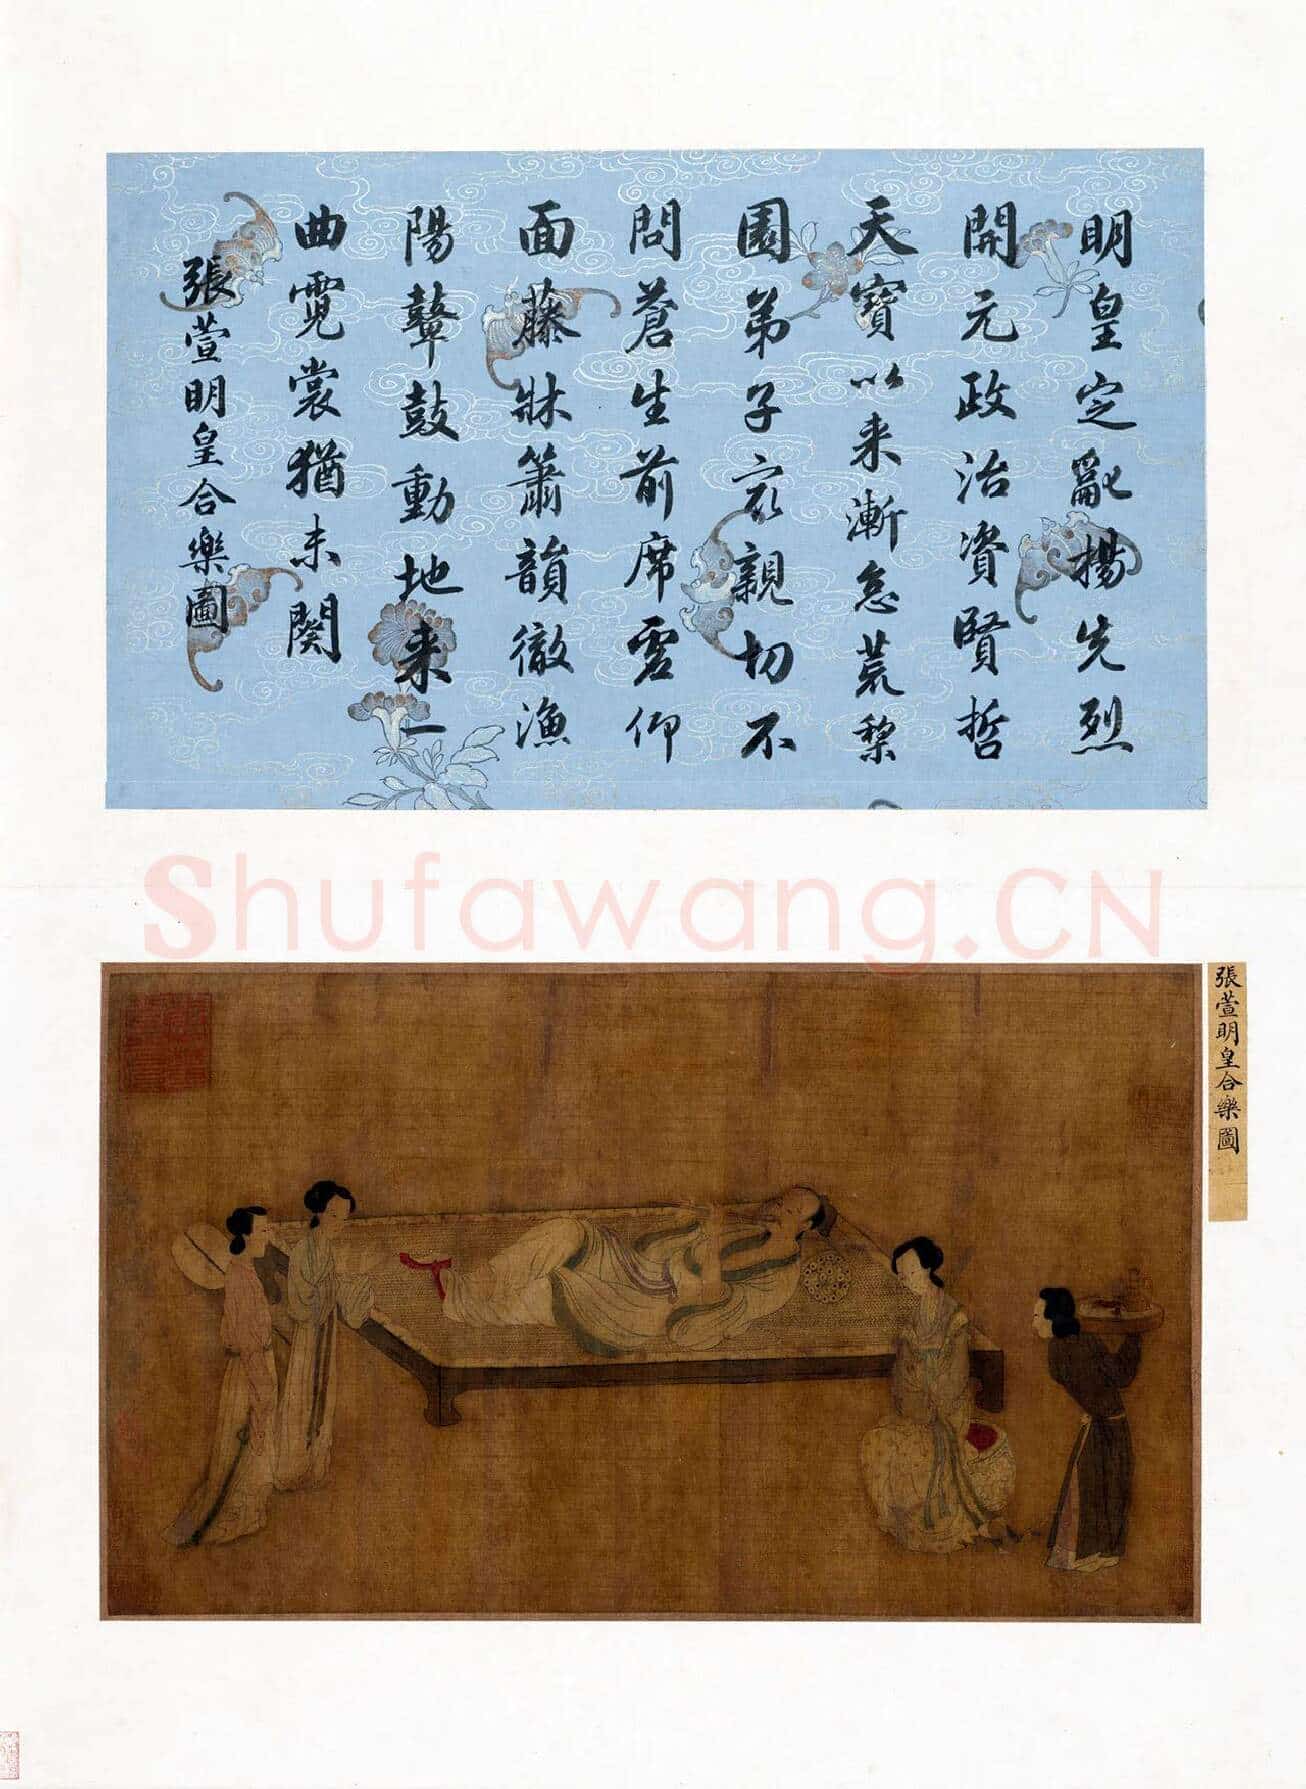 明皇定亂揚先烈
開元政治資賢哲
天寶以来漸怠荒黎
園弟子衣親切不
問蒼生前席虛仰
面藤牀簫韻徹漁
陽鼙鼓動地来一
曲霓裳猶未闋
張萱明皇合樂圖
Shufawang.CN
張萱明皇合樂圖